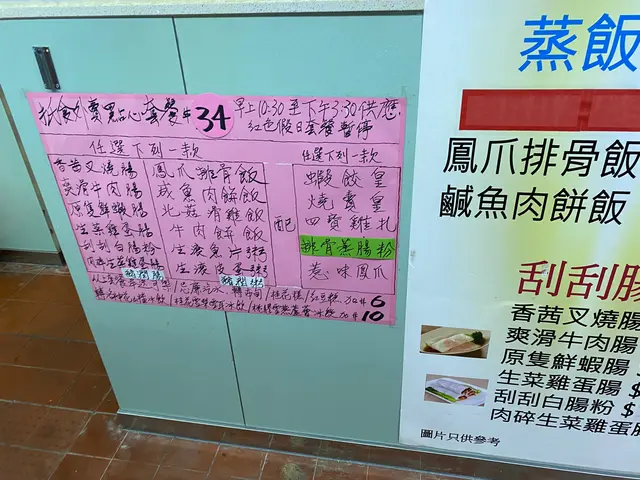 抵食外賣點心套餐 $34
早上10:30至下午3:30供應
紅色假日套餐暫停
任選下列一款
任選下列一款
香茜叉燒腸
爽滑牛肉腸
原隻鮮蝦腸
生菜雞蛋腸
刮刮白腸粉
肉碎生菜雞蛋腸
鳳爪排骨飯
咸魚肉餅飯
北菇滑雞飯
牛肉餅飯
生滾魚片粥
生滾皮蛋粥
配
蝦餃皇
燒賣皇
四寶雞扎
排骨蒸腸粉
惹味鳳爪
加$6
加$10
蒸飯
鳳爪排骨飯
鹹魚肉餅飯
刮刮腸
香茜叉燒腸
爽滑牛肉腸
原隻鮮蝦腸
生菜雞蛋腸 $
刮刮白腸粉 $
肉碎生菜雞蛋腸
圖片只供參考